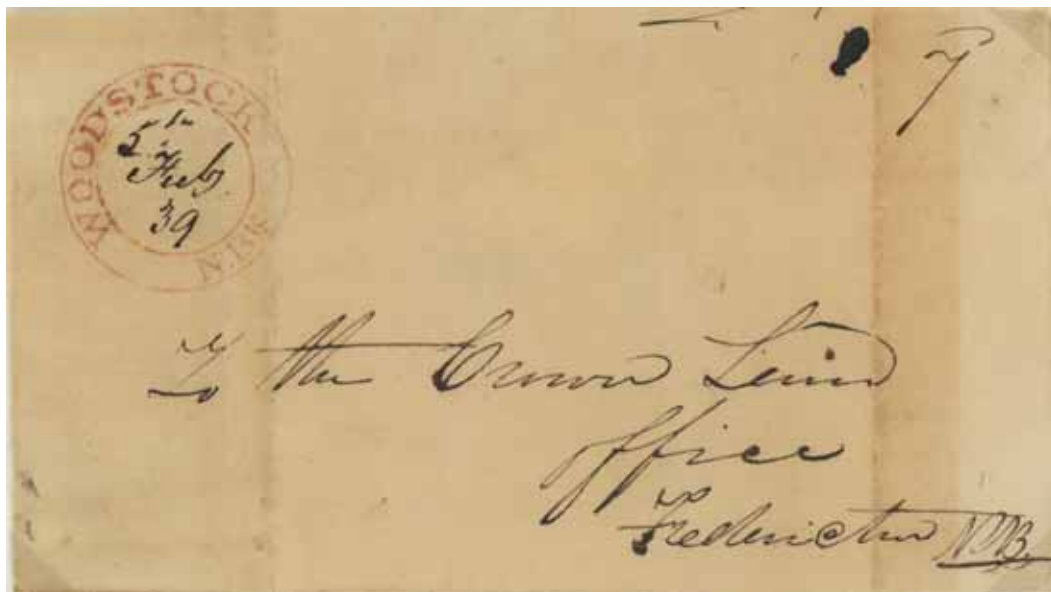 7
WOODSTOCK
5th
Feby
39
N.B.
To the Crown Land
office
Fredericton N.B.